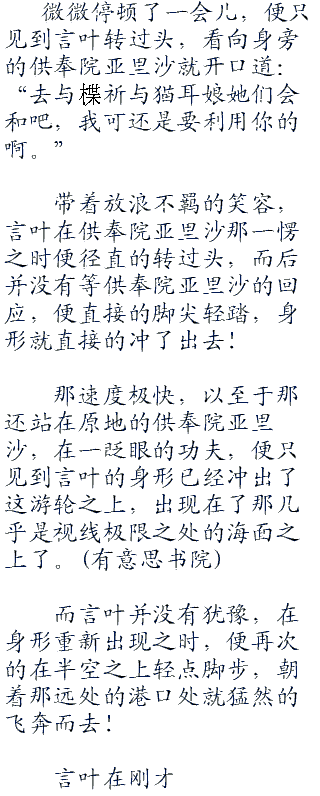 微微停顿了一会儿，便只
见到言叶转过头，看向身旁
的供奉院亚里沙就开口道：
“去与楪祈与猫耳娘她们会
和吧，我可还是要利用你的
啊。”
带着放浪不羁的笑容，
言叶在供奉院亚里沙那一愣
之时便径直的转过头，而后
并没有等供奉院亚里沙的回
应，便直接的脚尖轻踏，身
形就直接的冲了出去！
那速度极快，以至于那
还站在原地的供奉院亚里
沙，在一眨眼的功夫，便只
见到言叶的身形已经冲出了
这游轮之上，出现在了那几
乎是视线极限之处的海面之
上了。(有意思书院)
而言叶并没有犹豫，在
身形重新出现之时，便再次
的在半空之上轻点脚步，朝
着那远处的港口处就猛然的
飞奔而去！
言叶在刚才